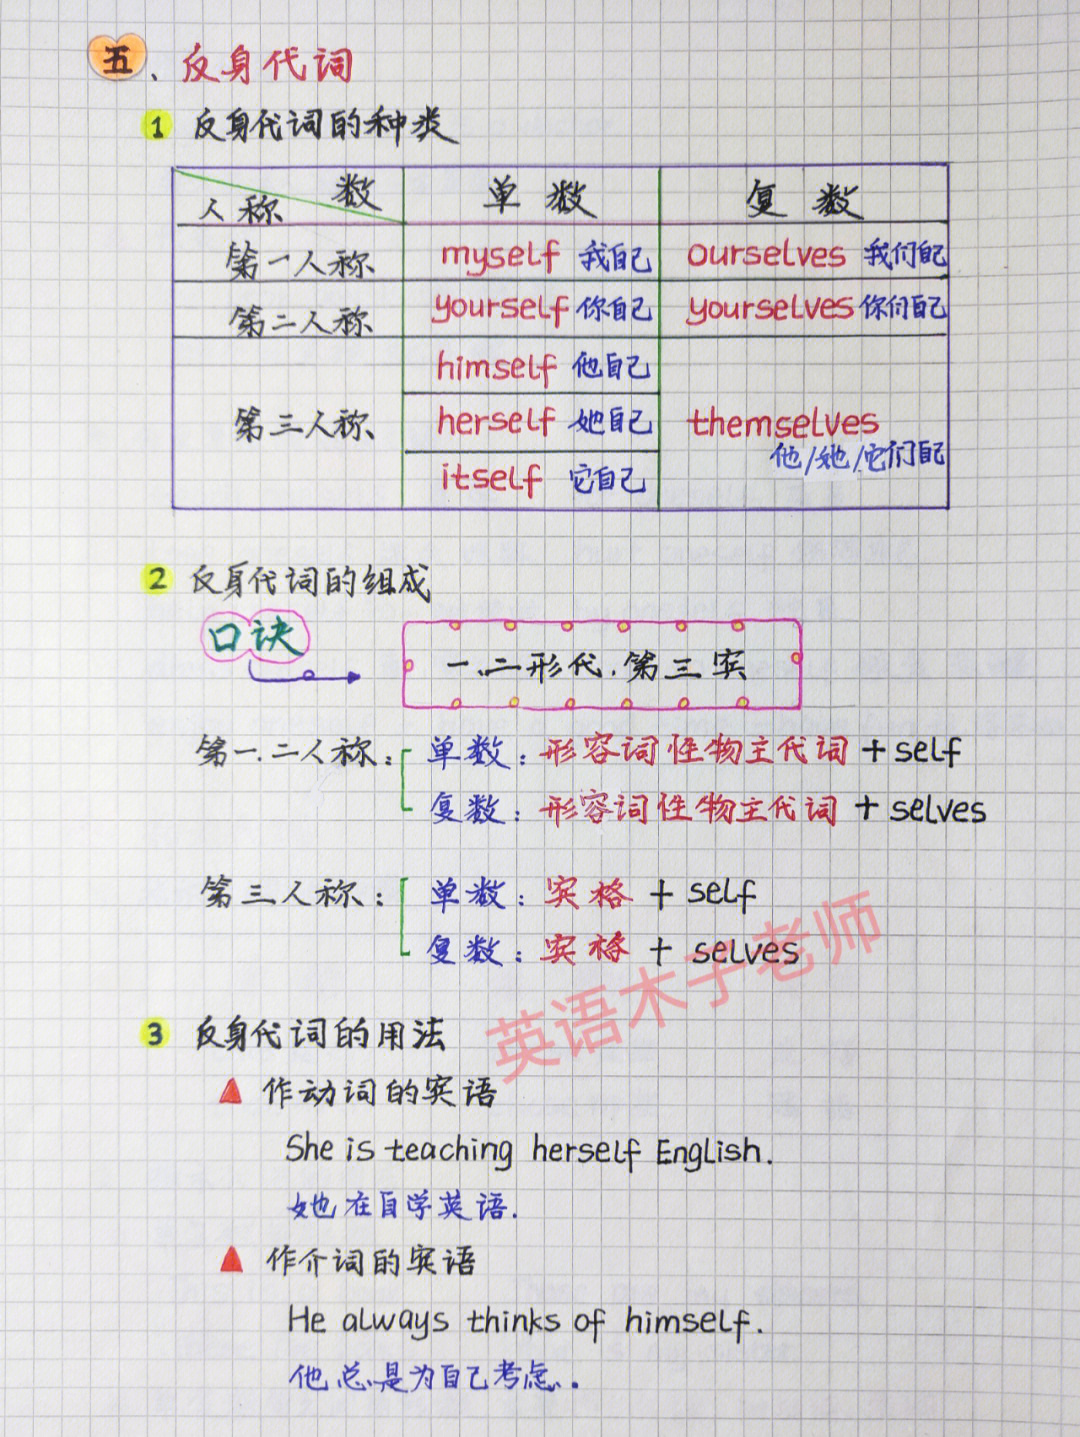 五、反身代词
1 反身代词的种类
数
人称
单数
复数
第一人称 myself 我自己 ourselves 我们自己
第二人称 yourself 你自己 yourselves 你们自己
himself 他自己
第三人称 herself 她自己 themselves
他/她/它们自己
itself 它自己
2 反身代词的组成
口诀
一.二形代.第三宾
第一.二人称: 单数: 形容词性物主代词 + self
复数: 形容词性物主代词 + selves
第三人称: 单数: 宾格 + self
复数: 宾格 + selves
英语木子老师
3 反身代词的用法
作动词的宾语
She is teaching herself English.
她在自学英语.
作介词的宾语
He always thinks of himself.
他总是为自己考虑.